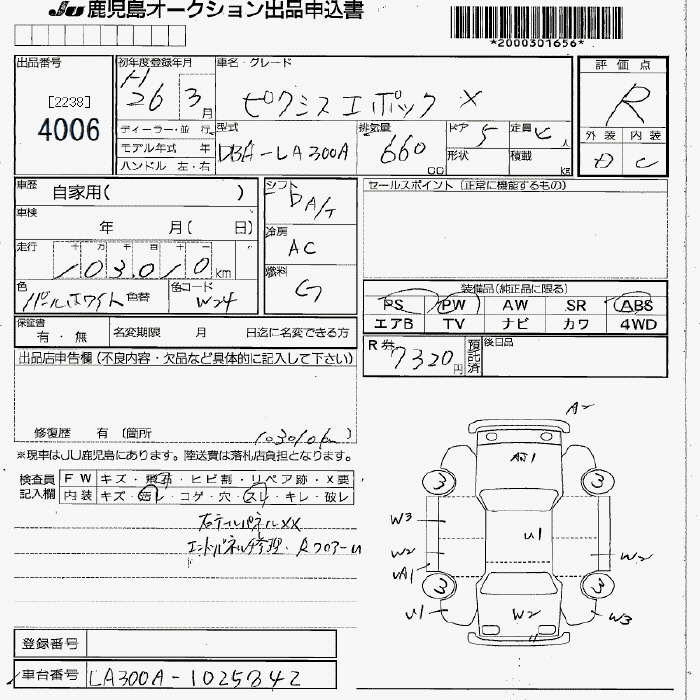 JU 鹿児島オークション出品申込書
*2000301656*
出品番号
[2238]
4006
初年度登録年月
H
26 3月
車名・グレード
ピクシス エポック X
ディーラー・並 行
モデル年式 年
ハンドル 左・右
型式
DBA-LA300A
排気量
660
CC
ドア 5
定員 人
形状
積載 KG
評 価 点
R
外 装 内 装
D C
車歴
自家用( )
車検
年 月( 日)
走行
十 万 千 百 十
103,010 km
色
パールホワイト 色替
色コード
W24
シフト
D A/T
冷房
AC
燃料
G
セールスポイント(正常に機能するもの)
装備品(純正品に限る)
PS PW AW SR ABS
エアB TV ナビ カワ 4WD
保証書
有・無
名変期限 月 日迄に名変できる方
R券
7320円
預託済
後日品
出品店申告欄(不良内容・欠品など具体的に記入して下さい)
修復歴 有 (箇所
103010km
※現車はJU鹿児島にあります。陸送費は落札店負担となります。
検査員
記入欄
FW キズ・飛石・ヒビ割・リペア跡・X要
内装 キズ・汚レ・コゲ・穴・スレ・キレ・破レ
右テールパネルXX
エンドパネル修理・Rフロアー
A2
A1
3 3
W3
U1
W2 W2
UA1
3 3
U1
W2
W3
登録番号
車台番号
LA300A-1025842